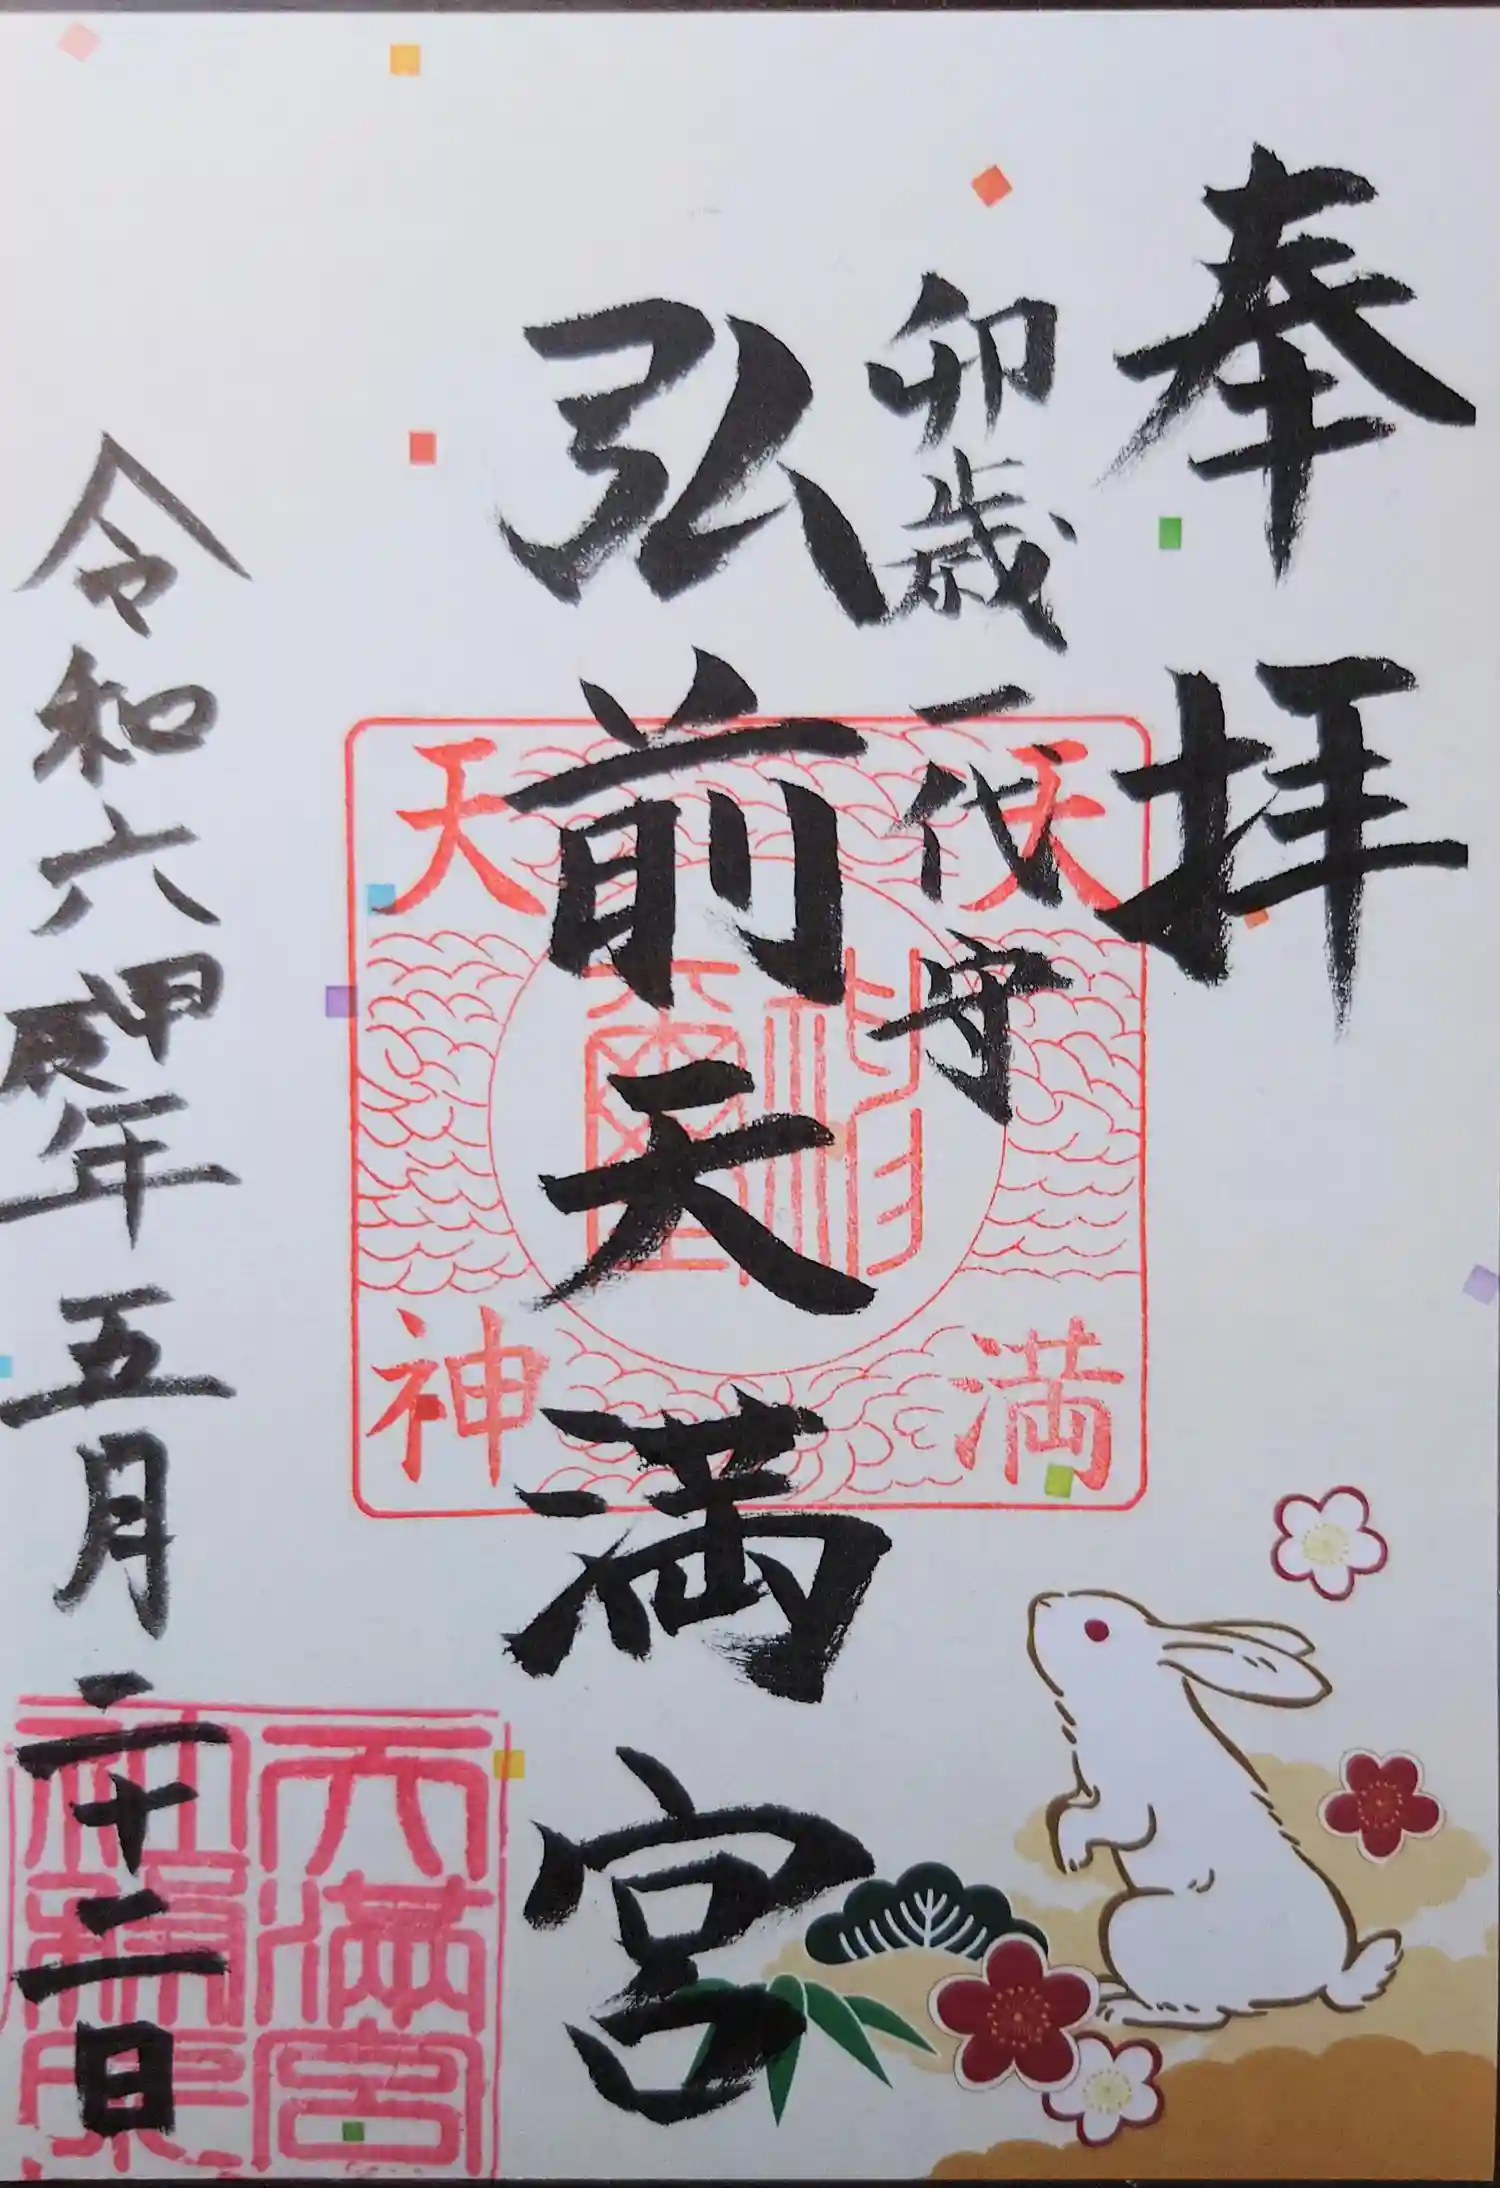 奉拝
卯歳一代守
弘前天満宮
天満
天神
令和六甲辰年五月二十二日
天満宮